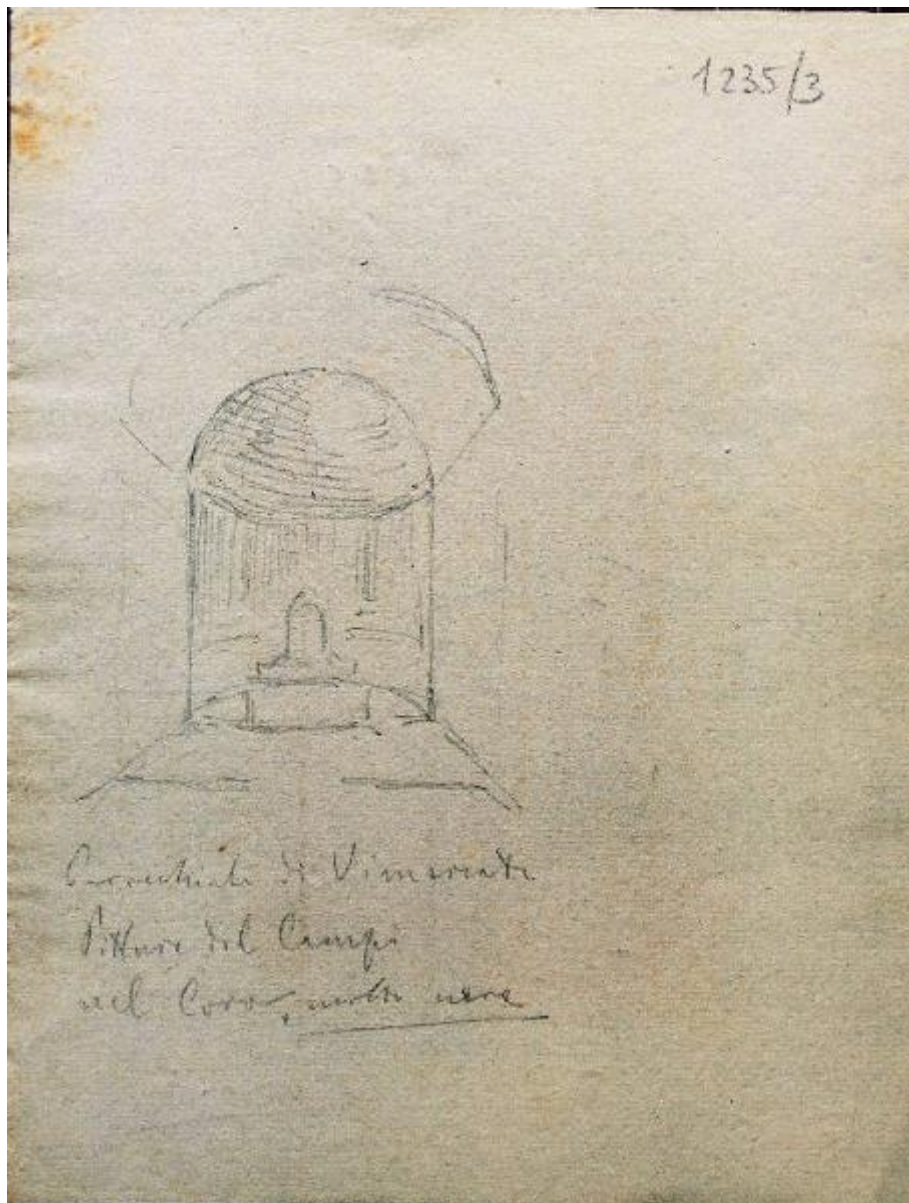 1235/3
Parrochiale di Vimercate
Pitture del Campi
nel Coro, molto nere